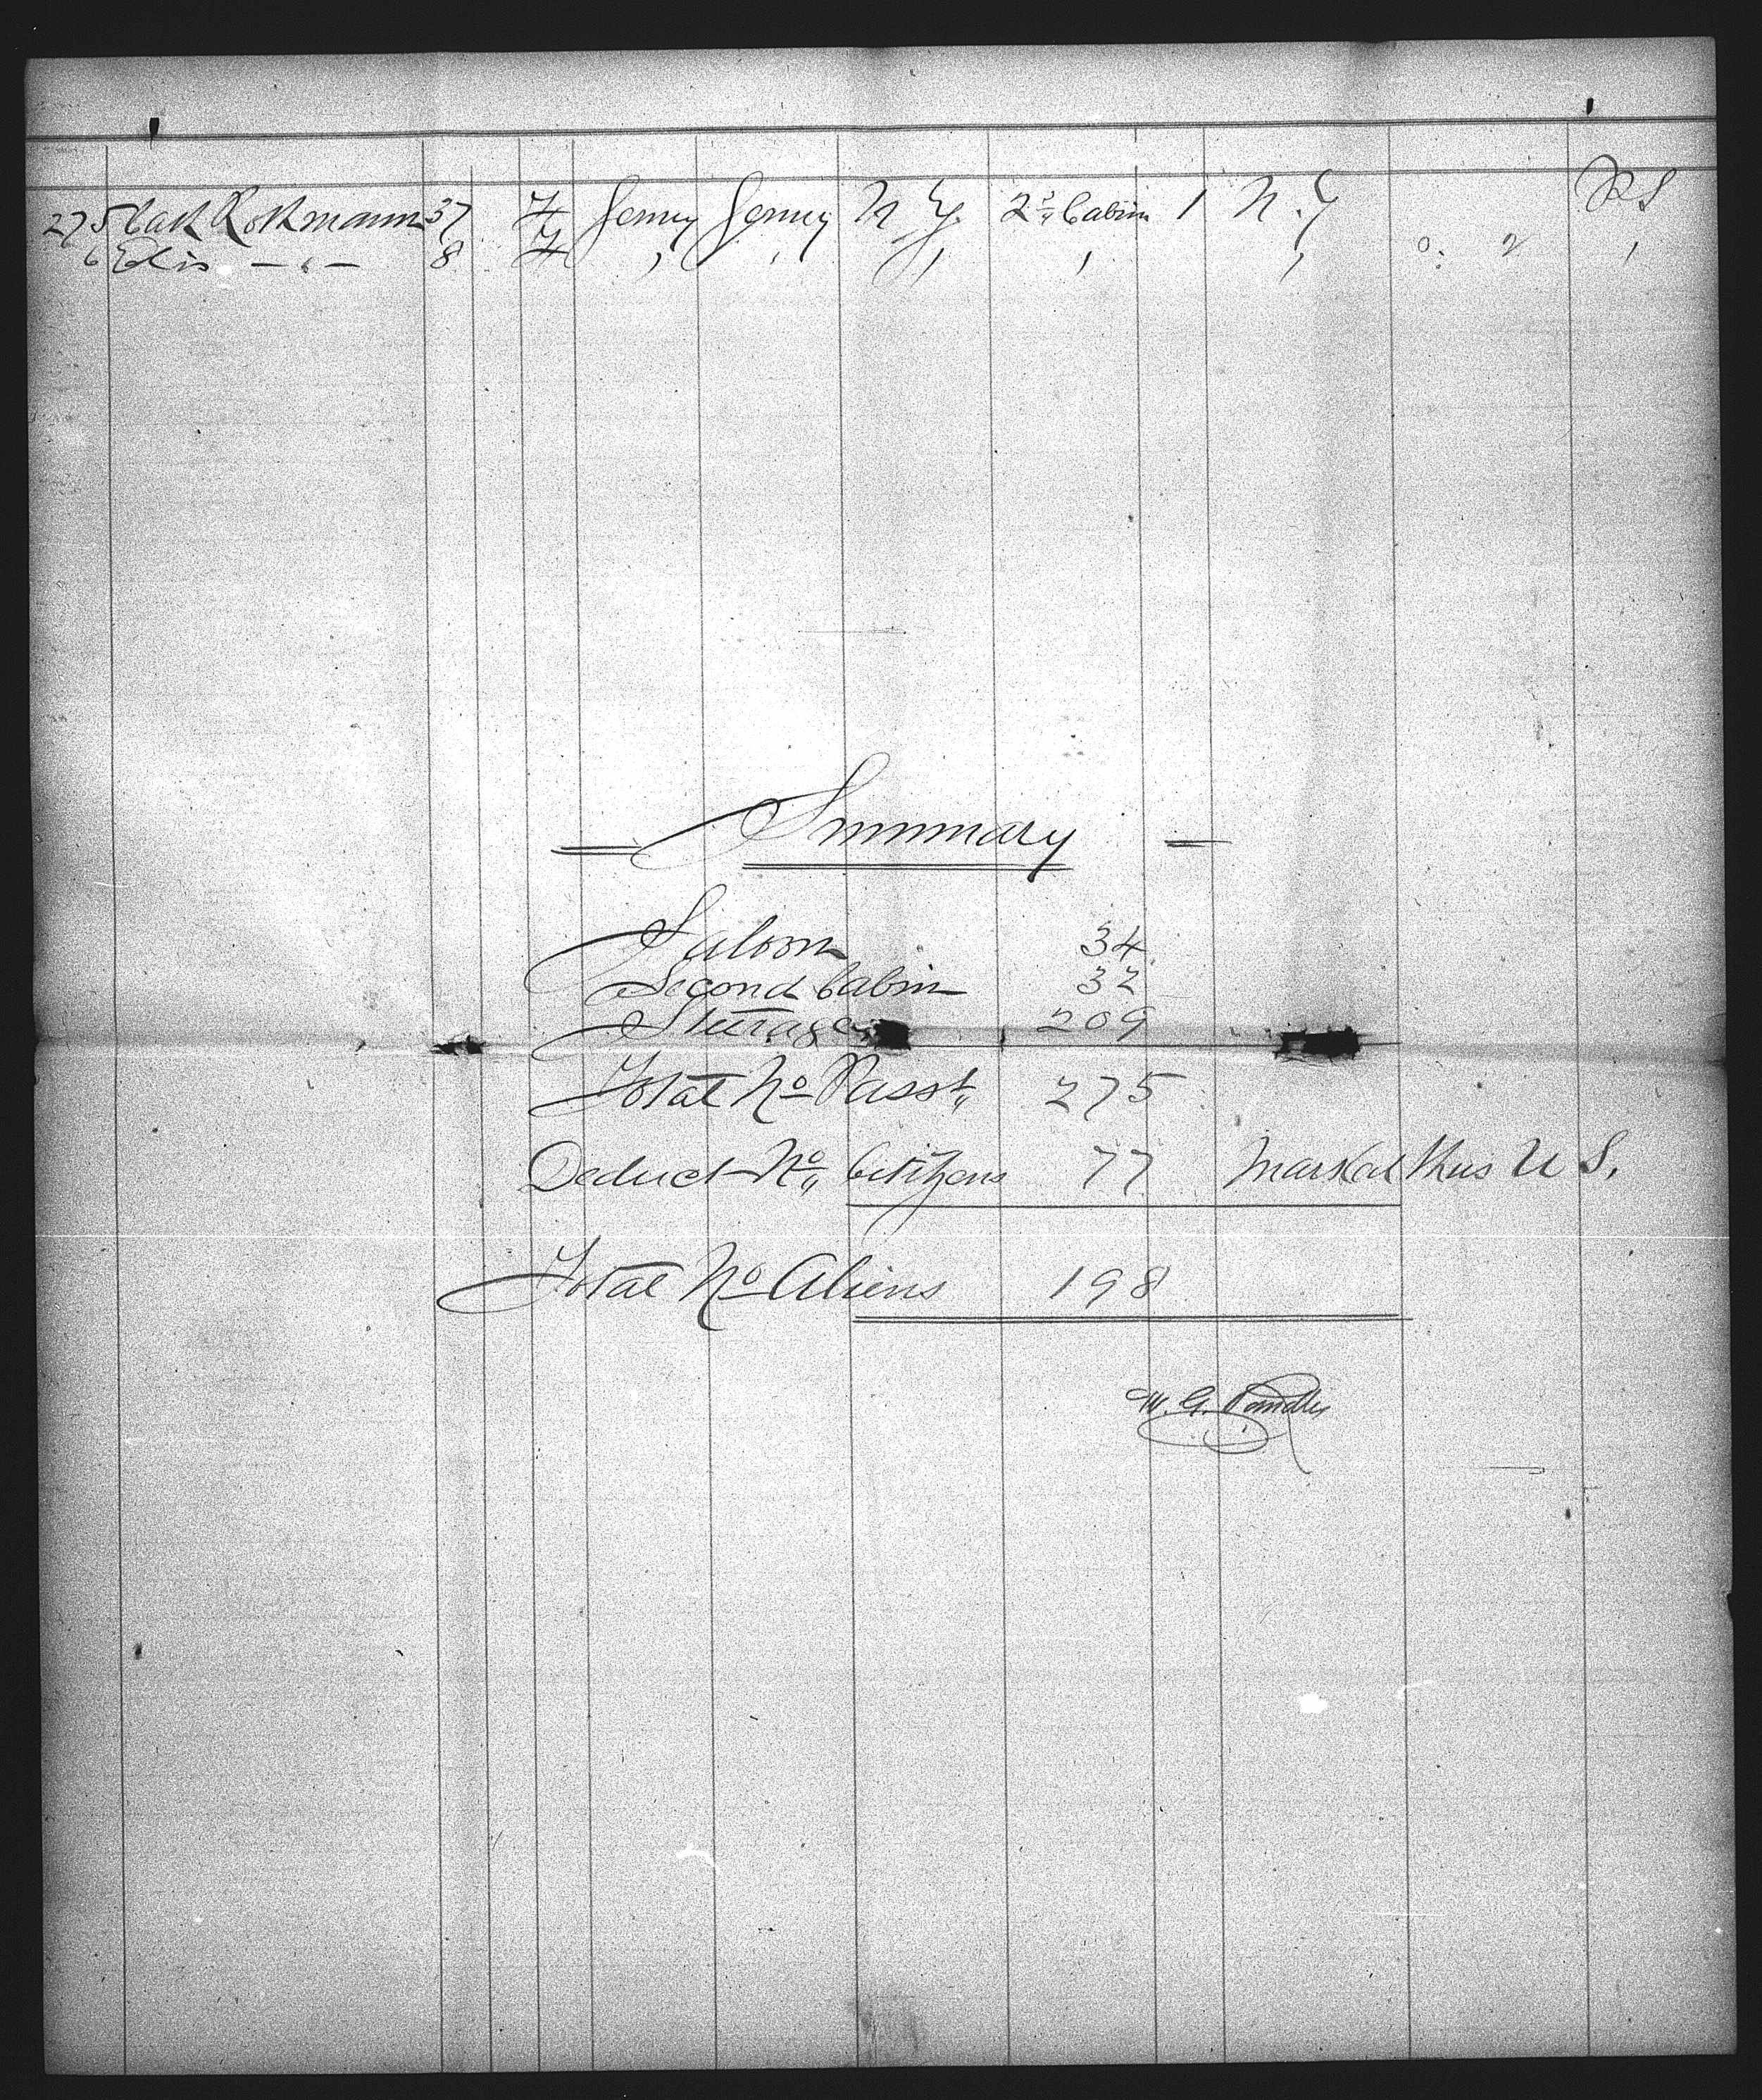 275 Cath Rothmann 37 F Germy Germy N Y. 2nd Cabin 1 N. Y
6 Elis — " — 8 F " " " " " 2 "
Summary
Saloon 34
Second Cabin 32
Steerage 209
Total No Passt, 275
Deduct No, Citizens 77 Marked thus U S.
Total No Aliens 198